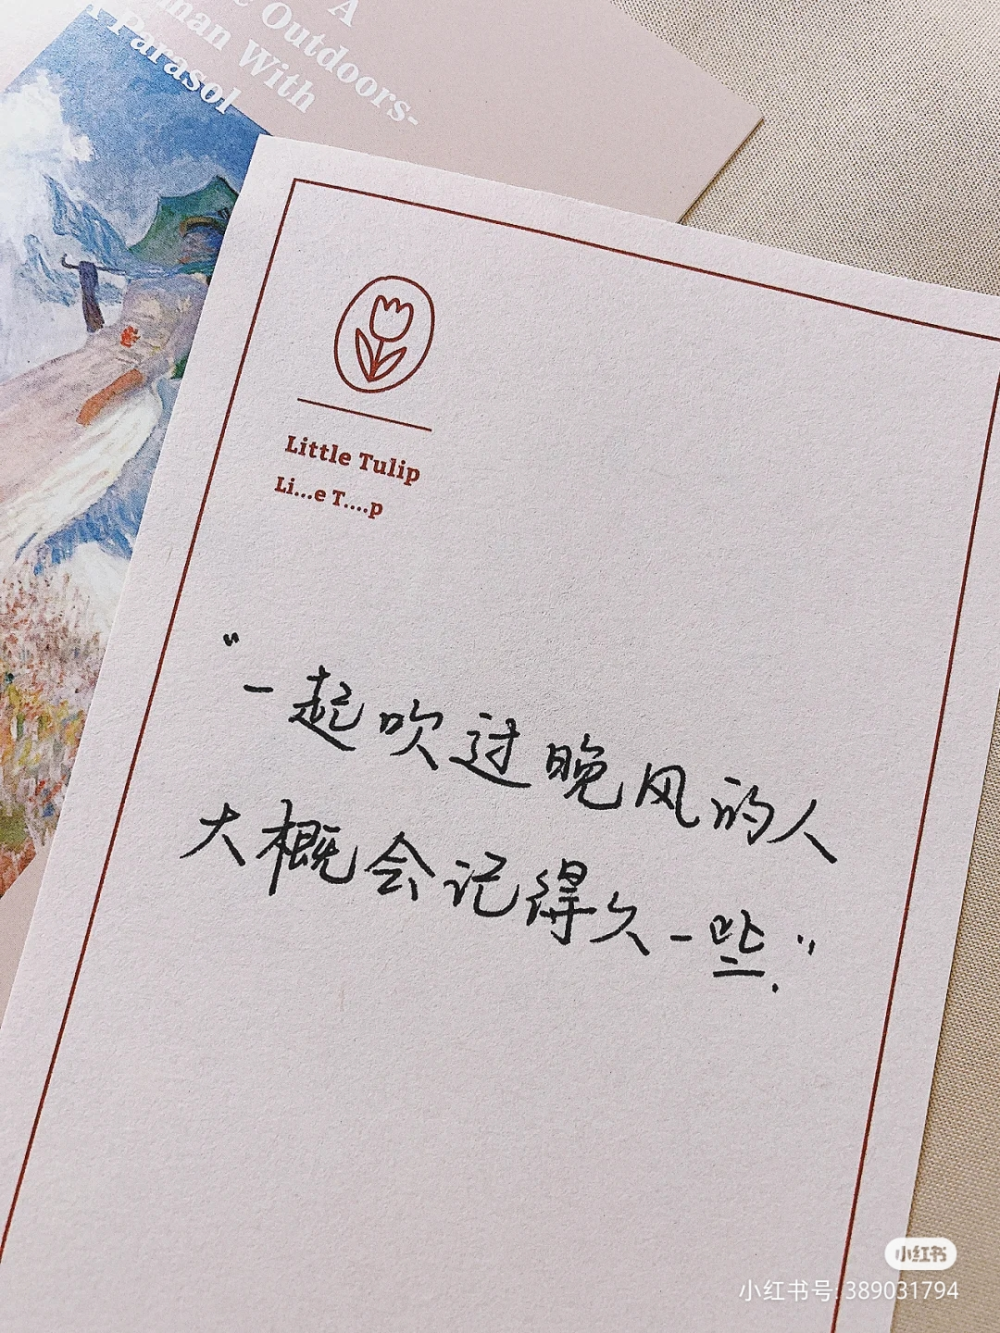 A
Outdoors-
man With
Parasol
Little Tulip
Li...e T....p
“一起吹过晚风的人
大概会记得久一些.”
小红书
小红书号: 389031794